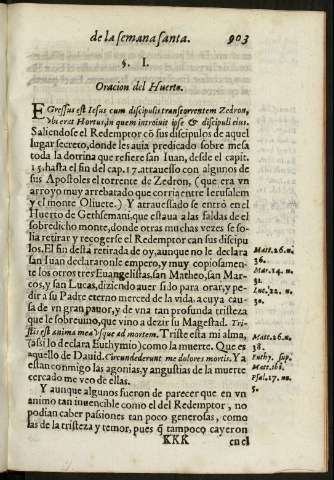 de la semana santa. 903
§. I.
Oracion del Huerto.
EGressus est Iesus cum discipulis trans torrentem Zedron,
Vbi erat Hortus, in quem introiuit ipse & discipuli eius.
Saliendose el Redemptor cõ sus discipulos de aquel
lugar secreto, donde les auia predicado sobre mesa
toda la dotrina que refiere san Iuan, desde el capit.
15. hasta el fin del cap. 17. atrauesso con algunos de
sus Apostoles el torrente de Zedròn, (que era vn
arroyo muy arrebatado que corria entre Ierusalem
y el monte Oliuete.) Y atrauesado se entrò en el
Huerto de Gethsemani, que estaua a las faldas de el
sobredicho monte, donde otras muchas vezes se so-
lia retirar y recogerse el Redemptor can sus discipu
los. El fin desta retirada de oy, aunque no le declara
san Iuan declararonle empero, y muy copiosamen-
te los otros tres Euangelistas, san Matheo, san Mar-
cos, y san Lucas, diziendo auer si lo para orar, y pe-
dir a su Padre eterno merced de la vida. a cuya cau-
sa de vn gran pauor, y de vna tan profunda tristeza
que le sobreuino, que vino a dezir su Magestad. Tri-
stis est anima mea vsque ad mortem. Triste esta mi alma,
(assi lo declara Euthymio) como la muerte. Que es
aquello de Dauid. Circundederunt me dolores mortis. Ya
estan conmigo las agonias, y angustias de la muerte
cercado me veo de ellas.
Y aunque algunos fueron de parecer que en vn
animo tan inuencible como el del Redemptor, no
podian caber passiones tan poco generosas, como
las de la tristeza y temor, pues q̃ tampoco cayeron
KKK en el
Mat. 26. n.
36.
Mar. 14. n.
32.
Luc. 22. n.
Matt. 26. n.
38.
Euthy. sup.
Psal. 17. nu.
5.